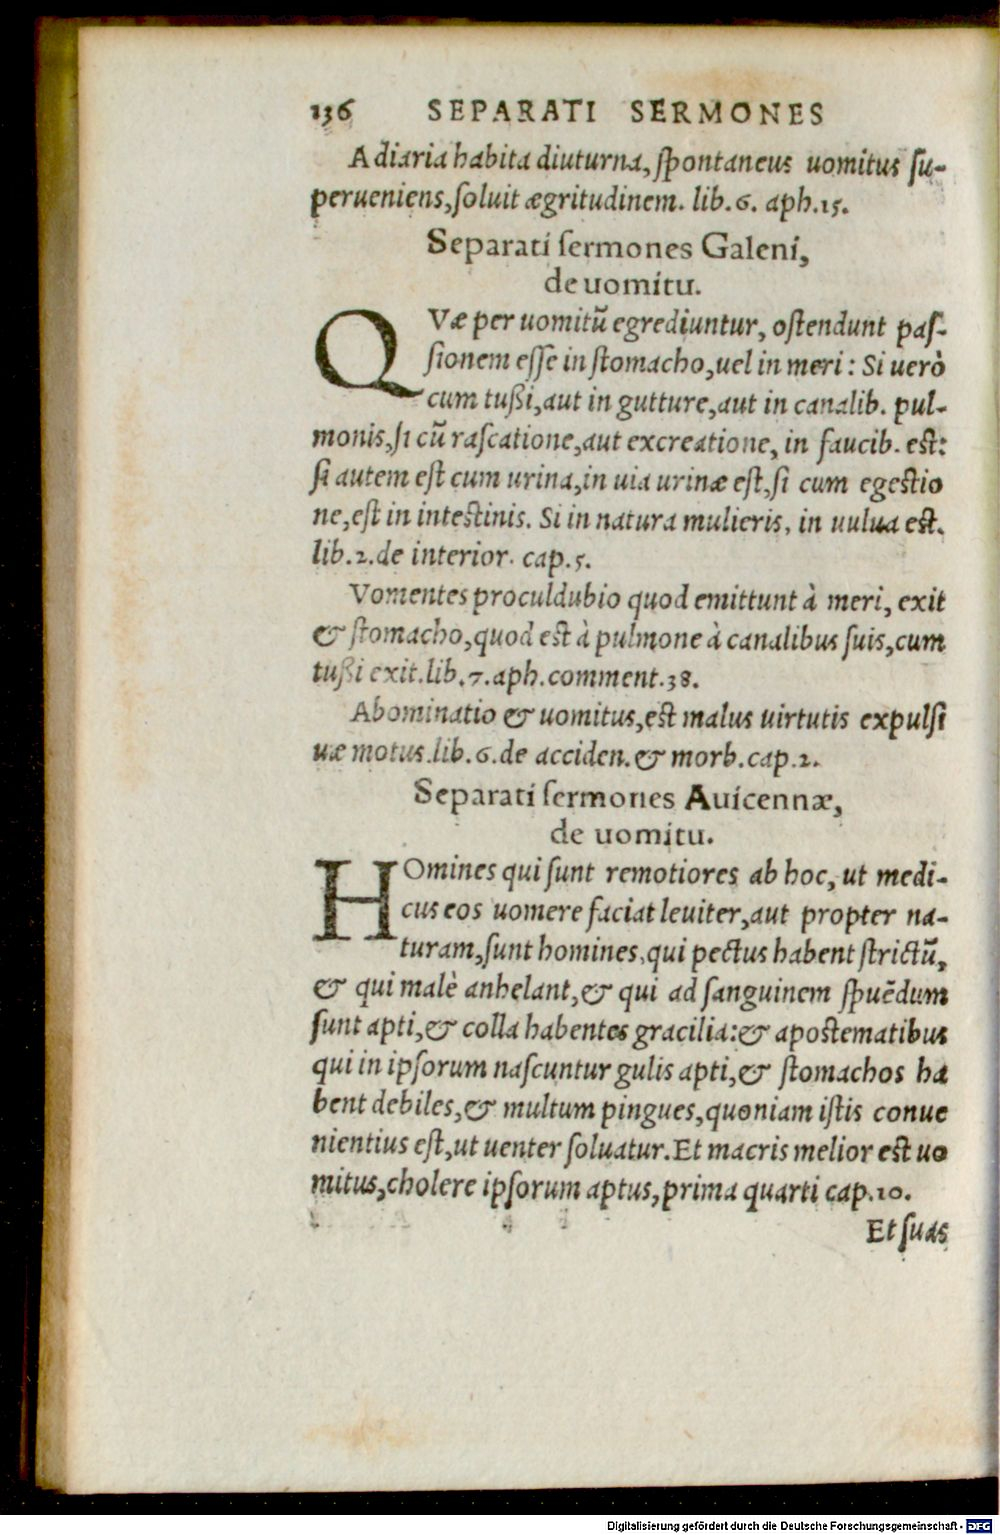 136 SEPARATI SERMONES
Adiaria habita diuturna, ſpontaneus uomitus ſu-
perueniens, ſoluit ægritudinem. lib. 6. aph. 15.
Separati ſermones Galeni,
de uomitu.
QVæ per uomitũ egrediuntur, oſtendunt paſ-
ſionem eſſe in ſtomacho, uel in meri: Si uerò
cum tußi, aut in gutture, aut in canalib. pul-
monis, ſi cũ raſcatione, aut excreatione, in faucib. est:
ſi autem eſt cum urina, in uia urinæ eſt, ſi cum egestio
ne, eſt in intestinis. Si in natura mulieris, in uulua est.
lib. 2. de interior. cap. 5.
Vomentes proculdubio quod emittunt à meri, exit
& ſtomacho, quod est à pulmone à canalibus ſuis, cum
tußi exit. lib. 7. aph. comment. 38.
Abominatio & uomitus, est malus uirtutis expulſi
uæ motus. lib. 6. de acciden. & morb. cap. 2.
Separati ſermones Auicennæ,
de uomitu.
HOmines qui ſunt remotiores ab hoc, ut medi-
cus eos uomere faciat leuiter, aut propter na-
turam, ſunt homines, qui pectus habent ſtrictũ,
& qui malè anhelant, & qui ad ſanguinem ſpuẽdum
ſunt apti, & colla habentes gracilia: & apostematibus
qui in ipſorum naſcuntur gulis apti, & ſtomachos ha
bent debiles, & multum pingues, quoniam iſtis conue
nientius eſt, ut uenter ſoluatur. Et macris melior est uo
mitus, cholere ipſorum aptus, prima quarti cap. 10.
Et ſuas
Digitalisierung gefördert durch die Deutsche Forschungsgemeinschaft - DFG